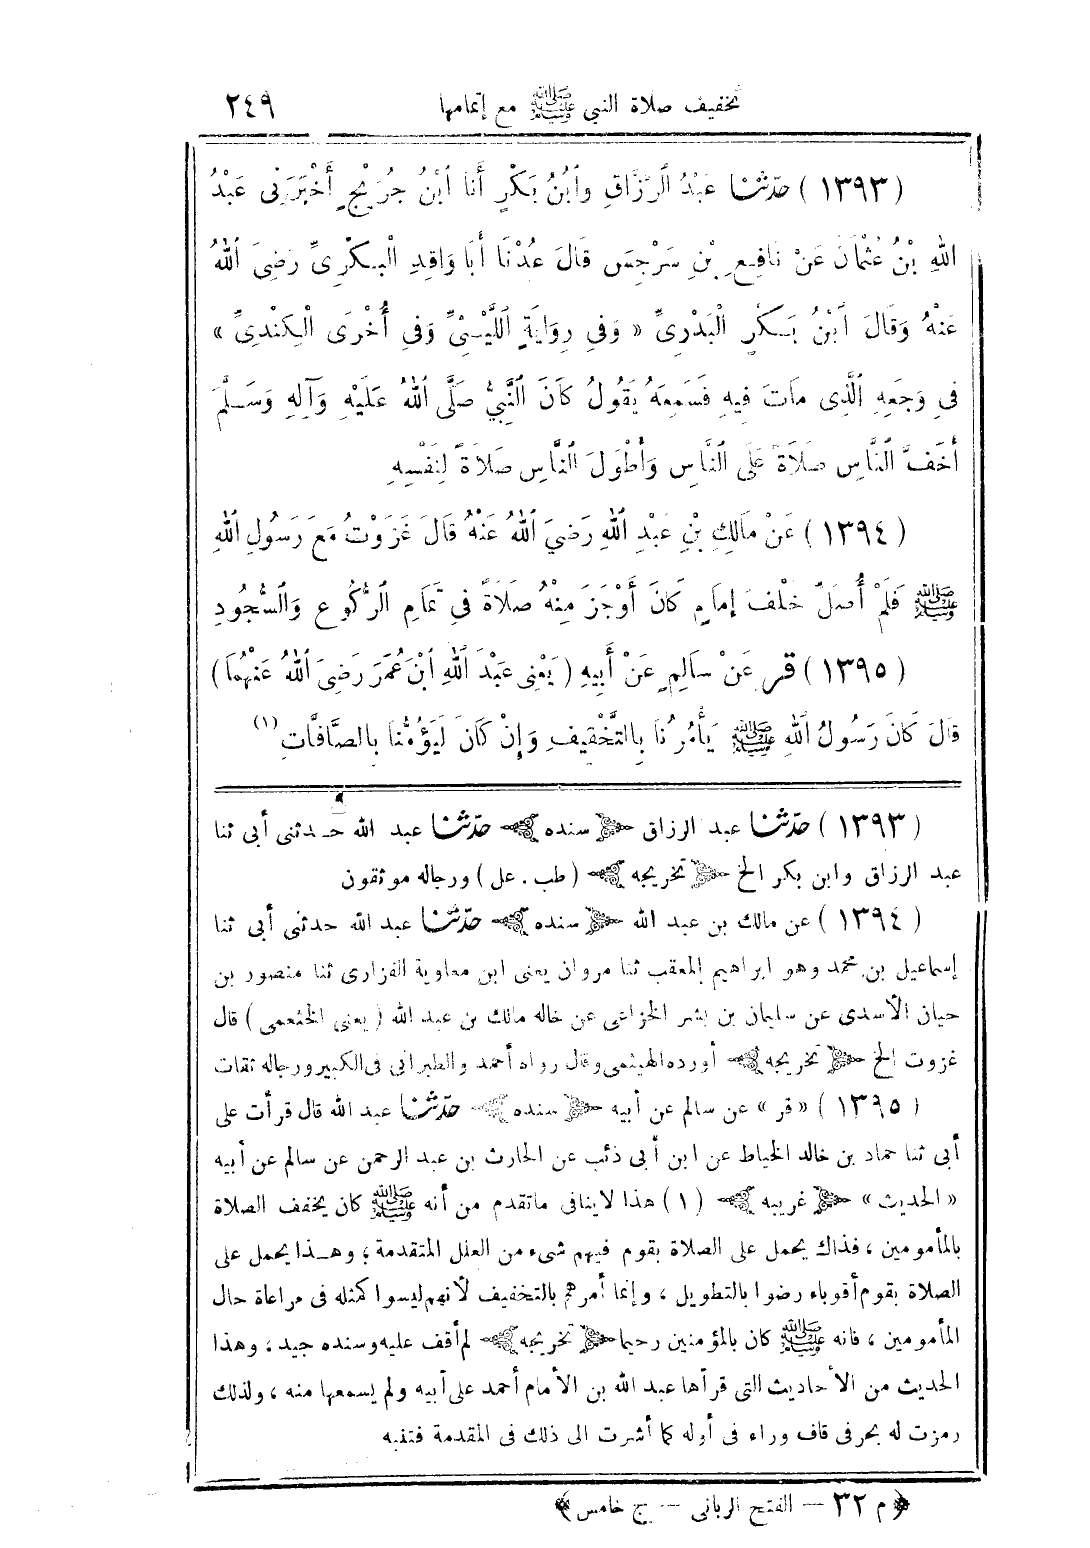 تخفيف صلاة النبي ﷺ مع إتمامها ٢٤٩
(١٣٩٣) حدّثنا عَبْدُ الرَّزَّاقِ وَابْنُ بَكْرٍ أَنَا ابْنُ جُرَيْجٍ أَخْبَرَنِى عَبْدُ
اللهِ بْنُ عُثْمَانَ عَنْ نَافِعِ بْنِ سَرْجِسَ قَالَ عُدْنَا أَبَا وَاقِدِ الْبَكْرِىِّ رَضِيَ اللهُ
عَنْهُ وَقَالَ ابْنُ بَكْرٍ الْبَدْرِىِّ « وَفِي رِوَايَةٍ اللَّيْثِىِّ وَفِي أُخْرَى الْكِنْدِىِّ »
فِي وَجَعِهِ الَّذِى مَاتَ فِيهِ فَسَمِعَهُ يَقُولُ كَانَ النَّبِيُّ صَلَّى اللهُ عَلَيْهِ وَآلِهِ وَسَلَّمَ
أَخَفَّ النَّاسِ صَلَاةً عَلَى النَّاسِ وَأَطْوَلَ النَّاسِ صَلَاةً لِنَفْسِهِ
(١٣٩٤) عَنْ مَالِكِ بْنِ عَبْدِ اللهِ رَضِيَ اللهُ عَنْهُ قَالَ غَزَوْتُ مَعَ رَسُولِ اللهِ
ﷺ فَلَمْ أُصَلِّ خَلْفَ إِمَامٍ كَانَ أَوْجَزَ مِنْهُ صَلَاةً فِي تَمَامِ الرُّكُوعِ وَالسُّجُودِ
(١٣٩٥) قر عَنْ سَالِمٍ عَنْ أَبِيهِ (يَعْنِى عَبْدَ اللهِ ابْنَ عُمَرَ رَضِيَ اللهُ عَنْهُمَا)
قَالَ كَانَ رَسُولُ اللهِ ﷺ يَأْمُرُنَا بِالتَّخْفِيفِ وَإِنْ كَانَ لَيَؤُمُّنَا بِالصَّافَّاتِ (١)
(١٣٩٣) حدّثنا عبد الرزاق ﴿سنده﴾ حدّثنا عبد الله حدثنى أبى ثنا
عبد الرزاق وابن بكر الخ ﴿تخريجه﴾ (طب . عل) ورجاله موثقون
(١٣٩٤) عن مالك بن عبد الله ﴿سنده﴾ حدّثنا عبد الله حدثنى أبى ثنا
إسماعيل بن محمد وهو ابراهيم المعقب ثنا مروان يعنى ابن معاوية الفزارى ثنا منصور بن
حيان الأسدى عن سليمان بن بشر الخزاعى عن خاله مالك بن عبد الله (يعنى الخثعمى) قال
غزوت الخ ﴿تخريجه﴾ أورده الهيثمى وقال رواه أحمد والطبرانى فى الكبير ورجاله ثقات
(١٣٩٥) «قر» عن سالم عن أبيه ﴿سنده﴾ حدّثنا عبد الله قال قرأت على
أبى ثنا حماد بن خالد الخياط عن ابن أبى ذئب عن الحارث بن عبد الرحمن عن سالم عن أبيه
«الحديث» ﴿غريبه﴾ (١) هذا لاينافى ماتقدم من أنه ﷺ كان يخفف الصلاة
بالمأمومين ، فذاك يحمل على الصلاة بقوم فيهم شىء من العلل المتقدمة ؛ وهذا يحمل على
الصلاة بقوم أقوياء رضوا بالتطويل ، وإنما أمرهم بالتخفيف لأنهم ليسوا كمثله فى مراعاة حال
المأمومين ، فانه ﷺ كان بالمؤمنين رحيما ﴿تخريجه﴾ لم أقف عليه وسنده جيد ، وهذا
الحديث من الأحاديث التى قرأها عبد الله بن الأمام أحمد على أبيه ولم يسمعها منه ، ولذلك
رمزت له بحرفى قاف وراء فى أوله كما أشرت الى ذلك فى المقدمة فتنبه
﴿م ٣٢ — الفتح الربانى — ج خامس﴾